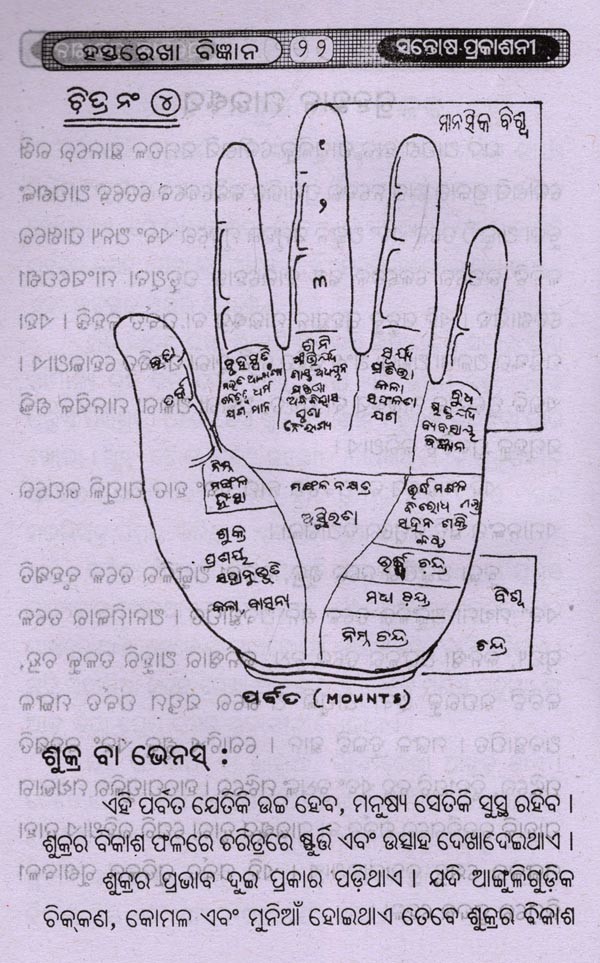 ହସ୍ତରେଖା ବିଜ୍ଞାନ ୨୨ ସନ୍ତୋଷ ପ୍ରକାଶନୀ
ଚିତ୍ର ନଂ ୪
ମାନସିକ ବିଶ୍ୱ
୧
୨
୩
ବୃହସ୍ପତି
ଧର୍ମ
ଶନି
ଅନ୍ଧବିଶ୍ୱାସ
ସୂର୍ଯ୍ୟ
ପ୍ରତିଭା
କଳା
ସଫଳତା
ଯଶ
ବୁଧ
ବ୍ୟବସାୟ
ବିଜ୍ଞାନ
ନିମ୍ନ
ମଙ୍ଗଳ
ମଙ୍ଗଳ ନକ୍ଷତ୍ର
ଅସ୍ଥିରତା
ସହନ ଶକ୍ତି
ଶୁକ୍ର
ପ୍ରଣୟ
ସହାନୁଭୂତି
କଳା, ବାସନା
ଚନ୍ଦ୍ର
ମଧ୍ୟ ଚନ୍ଦ୍ର
ନିମ୍ନ ଚନ୍ଦ୍ର
ବିଶ୍ୱ
ଚନ୍ଦ୍ର
ପର୍ବତ (MOUNTS)
ଶୁକ୍ର ବା ଭେନସ୍ :
ଏହି ପର୍ବତ ଯେତିକି ଉଚ୍ଚ ହେବ, ମନୁଷ୍ୟ ସେତିକି ସୁସ୍ଥ ରହିବ ।
ଶୁକ୍ରର ବିକାଶ ଫଳରେ ଚରିତ୍ରରେ ସ୍ଫୂର୍ତ୍ତି ଏବଂ ଉତ୍ସାହ ଦେଖାଦେଇଥାଏ ।
ଶୁକ୍ରର ପ୍ରଭାବ ଦୁଇ ପ୍ରକାର ପଡ଼ିଥାଏ । ଯଦି ଆଙ୍ଗୁଳିଗୁଡ଼ିକ
ଚିକ୍କଣ, କୋମଳ ଏବଂ ମୁନିଆଁ ହୋଇଥାଏ ତେବେ ଶୁକ୍ରର ବିକାଶ